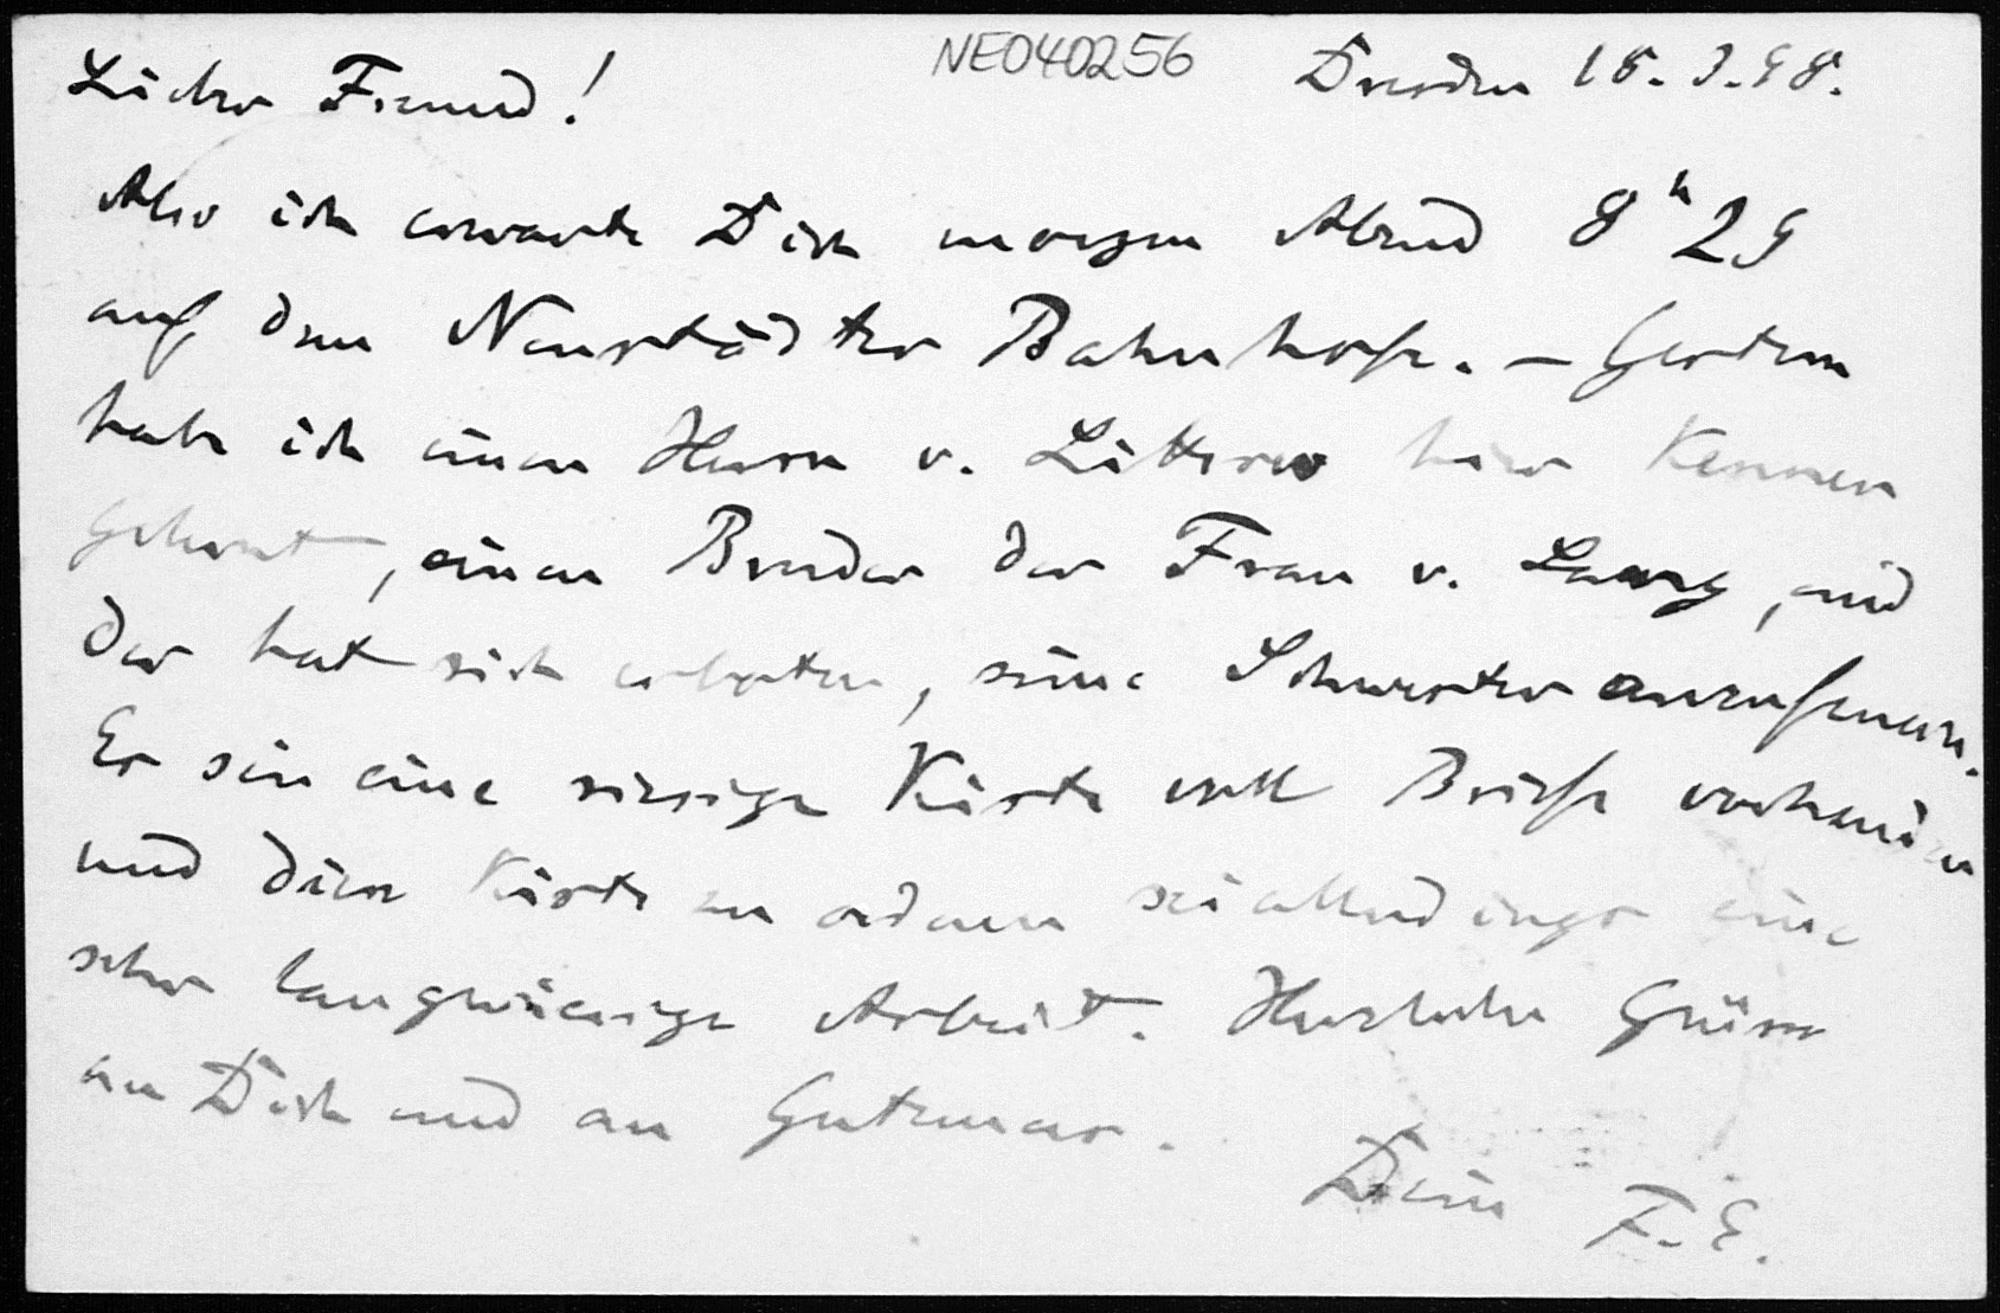 NE040256
Dresden 15.3.98.
Lieber Freund!
Also ich erwarte Dich morgen Abend 8h 29
auf dem Neustädter Bahnhofe. – Gestern
habe ich einen Herrn v. Littrow hier kennen
gelernt, einen Bruder der Frau v. Lang, und
der hat sich erboten, seine Schwester anzufeuern.
Es sei eine riesige Kiste voll Briefe vorhanden
und diese Kiste zu ordnen sei allerdings eine
sehr langwierige Arbeit. Herzliche Grüsse
an Dich und an Gutzmar.
Dein F. E.